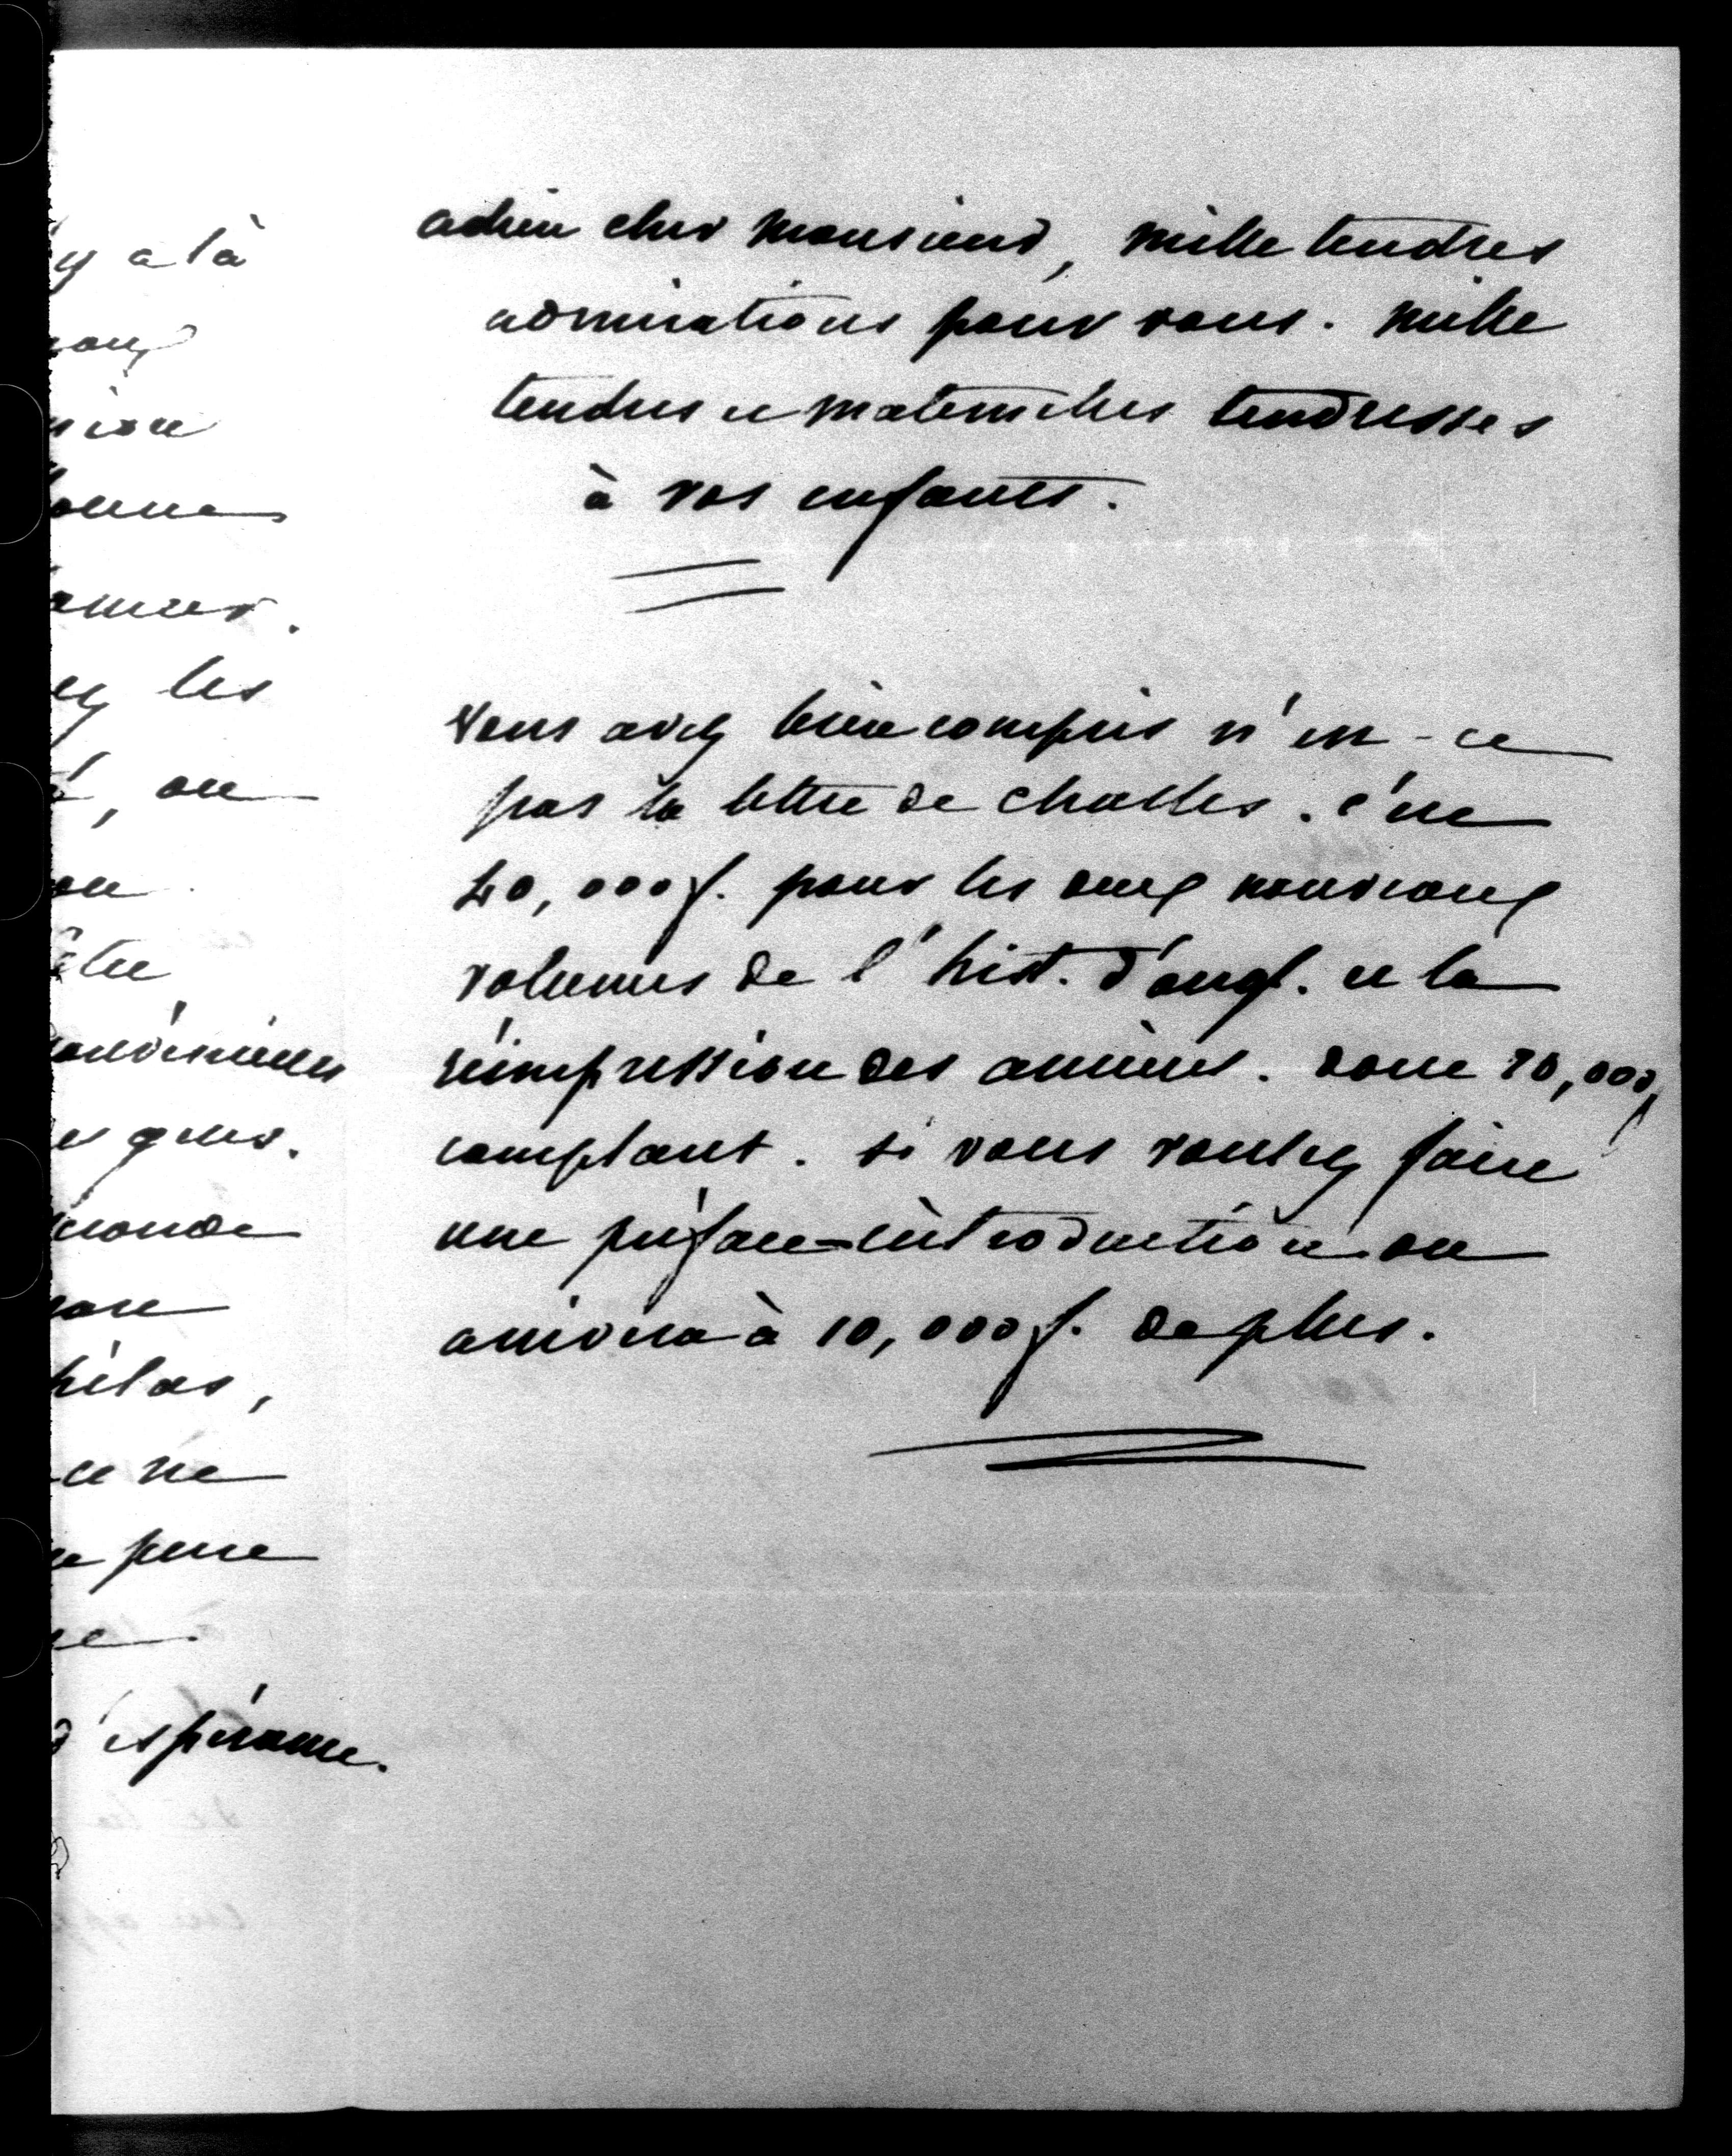 y a là
ion
onne
amier.
ez les
é, on
on
être
onvéniens
es gens.
monde
hélas,
ce ne
pense
d'espérance.
adieu cher monsieur, mille tendres
admirations pour vous. mille
tendres et maternelles tendresses
à vos enfants.
vous avez bien compris n'est-ce
pas la lettre de Challes. c'est
40,000 f. pour les deux nouveaux
volumes de l'hist. d'angl. et la
réimpression des anciens. donc 20,000 f
comptant. si vous voulez faire
une préface=introduction on
arrivera à 10,000 f. de plus.